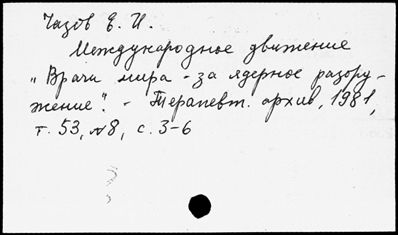 Чазов Е. И.
Международное движение
"Врачи мира - за ядерное разору-
жение". - Терапевт. архив, 1981,
т. 53, №8, с. 3-6